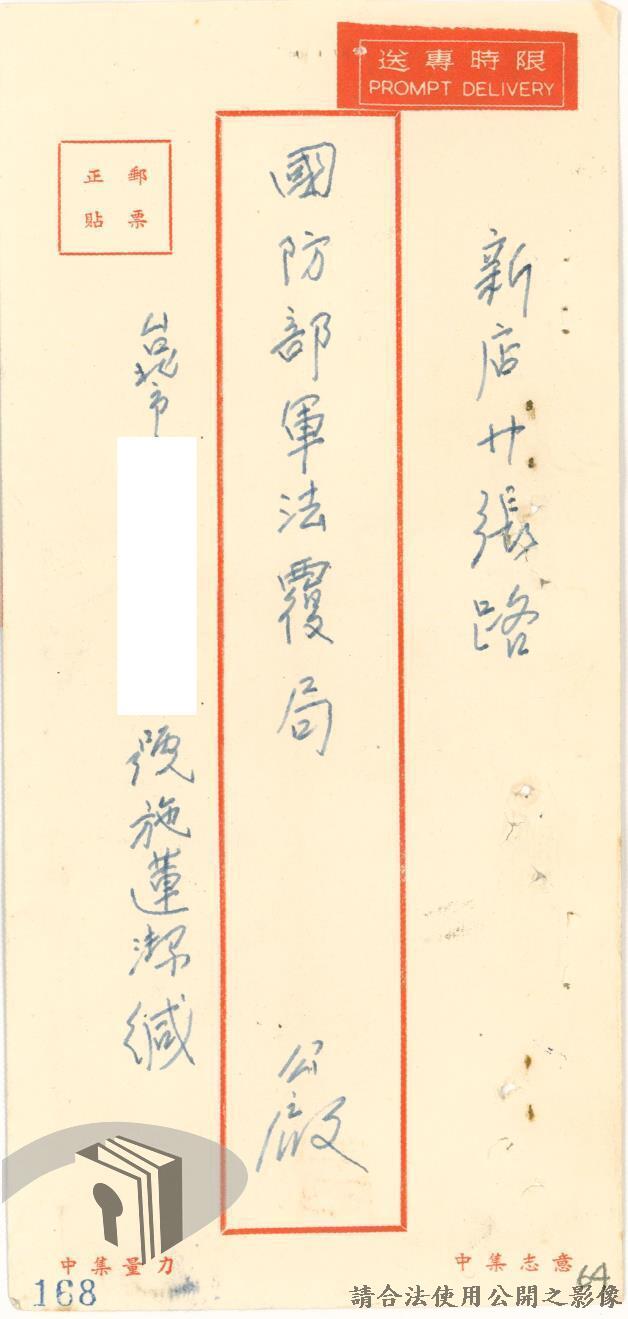 限時專送
PROMPT DELIVERY
新店廿張路
國防部軍法覆局
公啟
郵票
正貼
台北市
號施蓮潔緘
意志集中
力量集中
168
64
請合法使用公開之影像